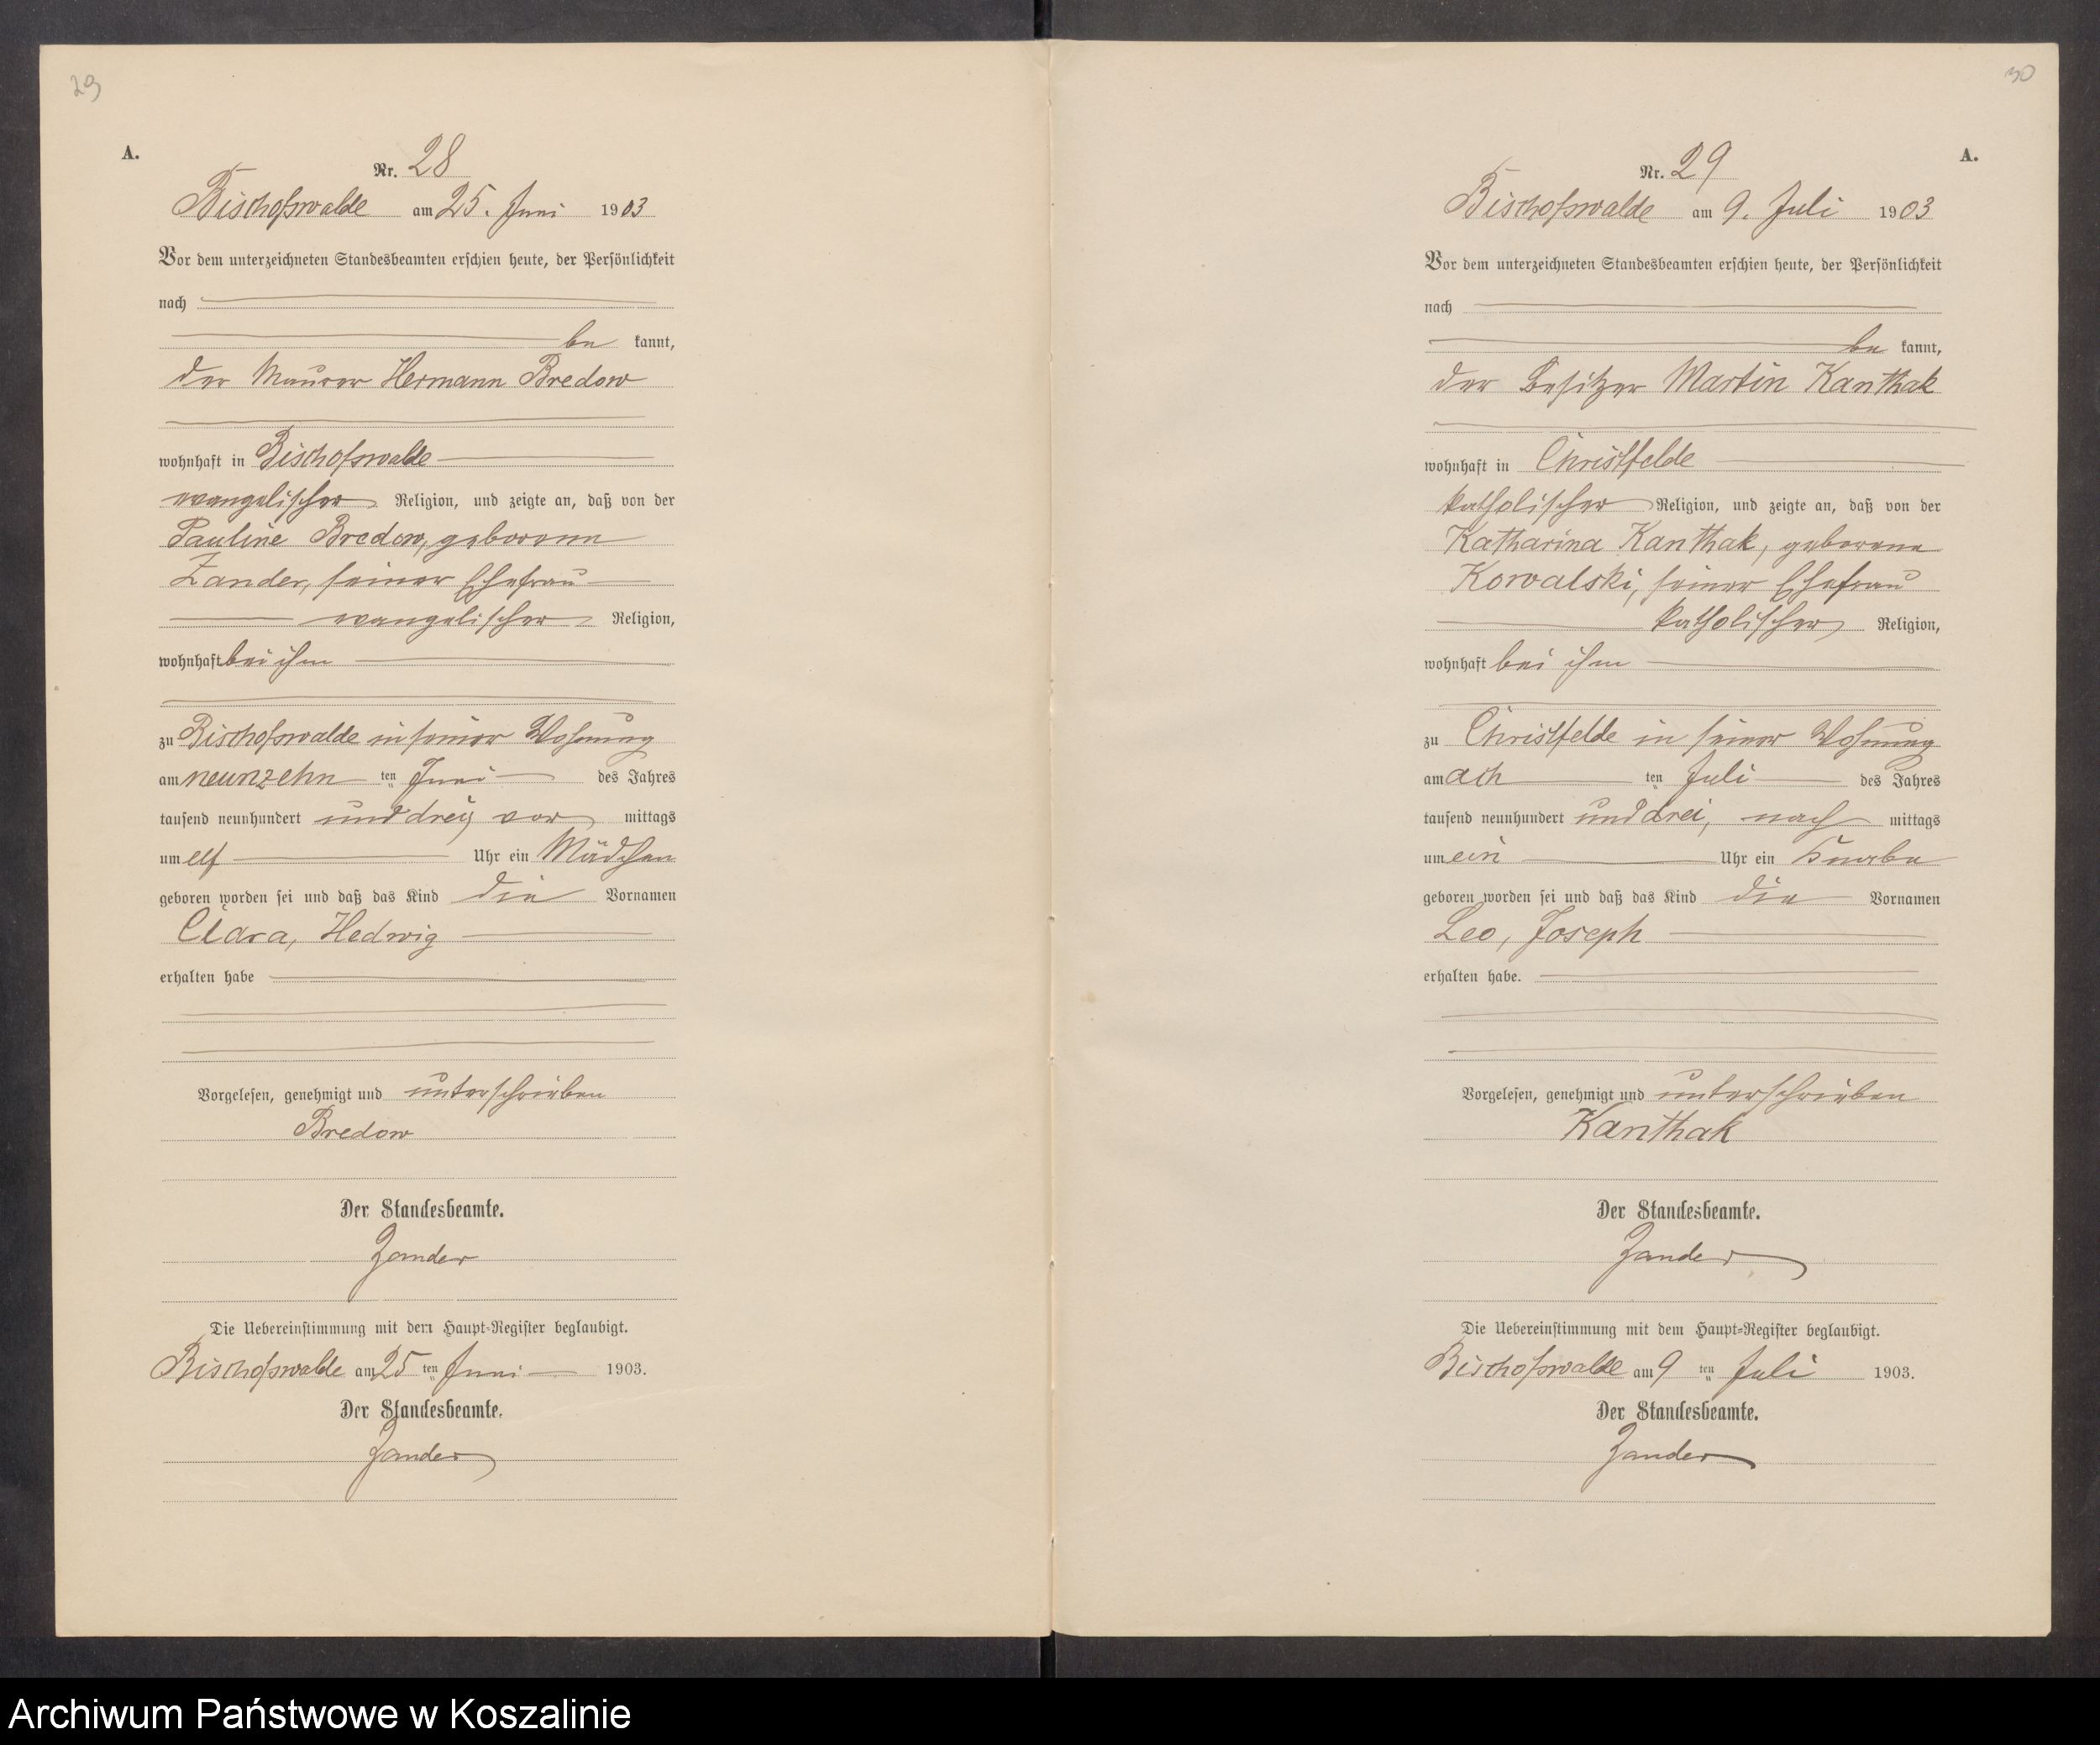 29
A.
Nr. 28
Bischofswalde am 25. Juni 1903
Vor dem unterzeichneten Standesbeamten erschien heute, der Persönlichkeit
nach
be kannt,
der Maurer Hermann Bredow
wohnhaft in Bischofswalde
evangelischer Religion, und zeigte an, daß von der
Pauline Bredow, geborene
Zander, seiner Ehefrau
evangelischer Religion,
wohnhaft bei ihm
zu Bischofswalde in seiner Wohnung
am neunzehn ten Juni des Jahres
tausend neunhundert und drei, vor mittags
um elf Uhr ein Mädchen
geboren worden sei und daß das Kind die Vornamen
Clara, Hedwig
erhalten habe
Vorgelesen, genehmigt und unterschrieben
Bredow
Der Standesbeamte.
Zander
Die Uebereinstimmung mit dem Haupt-Register beglaubigt.
Bischofswalde am 25 ten Juni 1903.
Der Standesbeamte.
Zander
30
A.
Nr. 29
Bischofswalde am 9. Juli 1903
Vor dem unterzeichneten Standesbeamten erschien heute, der Persönlichkeit
nach
be kannt,
der Besitzer Martin Kanthak
wohnhaft in Christfelde
katholischer Religion, und zeigte an, daß von der
Katharina Kanthak, geborene
Kowalski, seiner Ehefrau
katholischer Religion,
wohnhaft bei ihm
zu Christfelde in seiner Wohnung
am ach ten Juli des Jahres
tausend neunhundert und drei, nach mittags
um ein Uhr ein Knabe
geboren worden sei und daß das Kind die Vornamen
Leo, Joseph
erhalten habe.
Vorgelesen, genehmigt und unterschrieben
Kanthak
Der Standesbeamte.
Zander
Die Uebereinstimmung mit dem Haupt-Register beglaubigt.
Bischofswalde am 9 ten Juli 1903.
Der Standesbeamte.
Zander
Archiwum Państwowe w Koszalinie